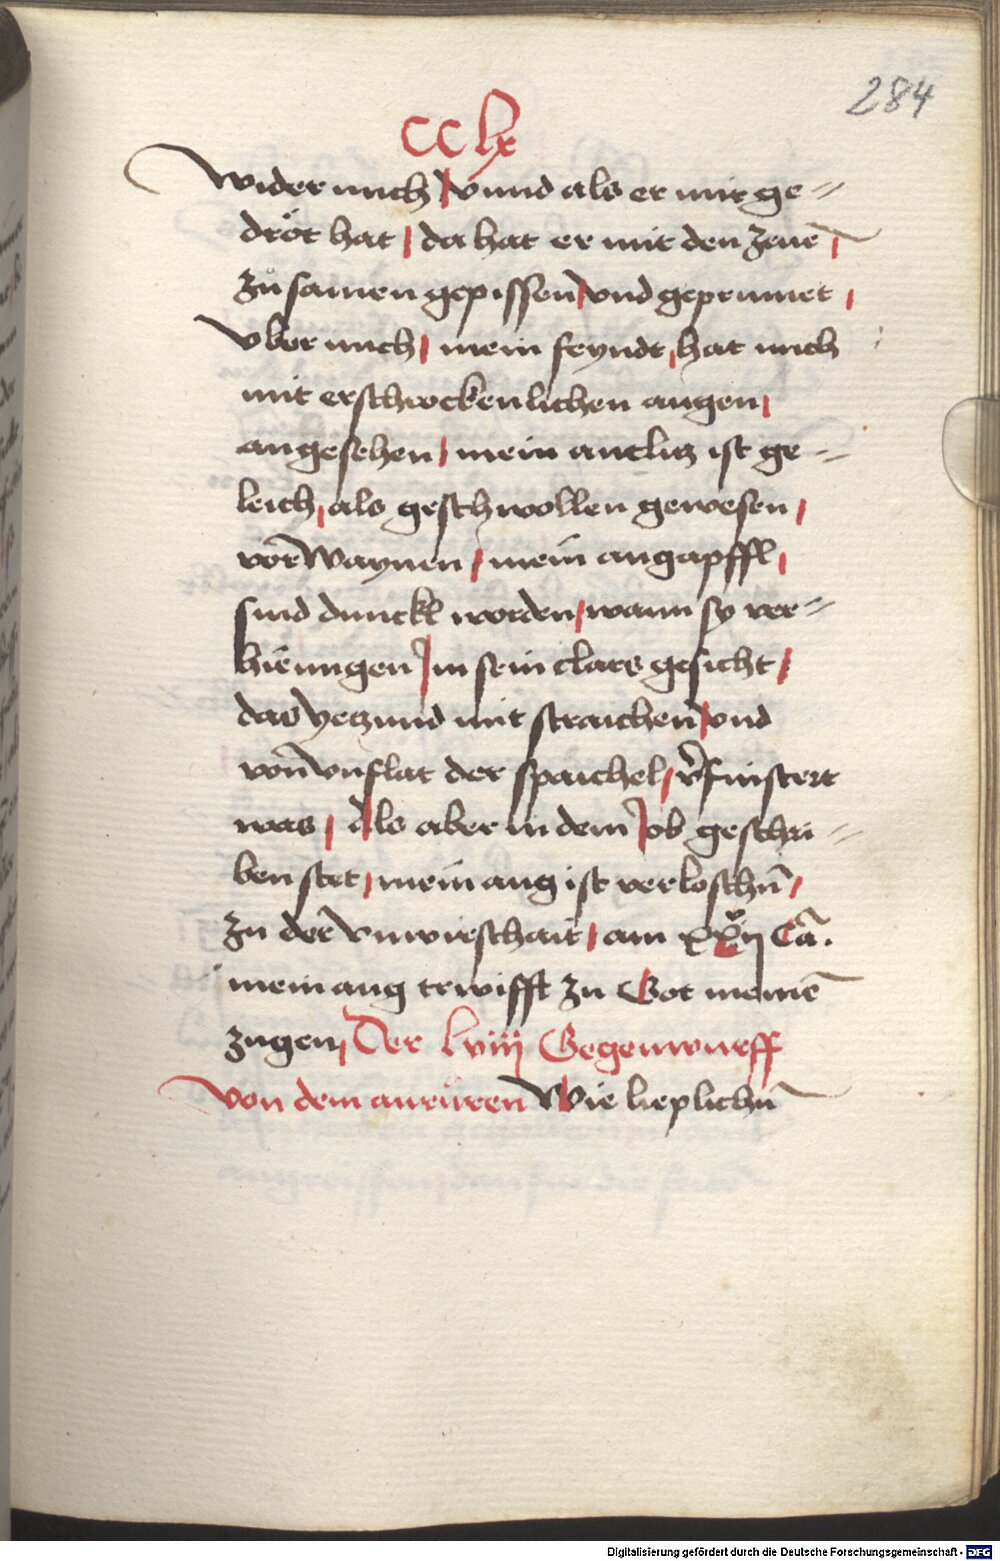 284
cclx
wider mich / vnnd als er mir ge=
dröt hat / da hat er mit den zenē /
zů samen gepissen / vnd geprummet /
vber mich / mein feyndt / hat mich
mit erschrockenlichen augen /
angesehen / mein antlitz ist ge=
leich / als geschwollen gewesen /
vor waynen / mein augapffl /
sind dunckl worden / wann sy ver=
hienngen / in sein clars gesicht /
das yetzund mit straichen / vnd
von vnflat der spaichel / v̄finstert
was / Als aber in dem Job geschri=
ben stet / mein aug ist verloschn̄ /
zu der vnwirschait / am xvij Ca̅.
mein aug trwifft zu Got meinē
zugen / Der lviij Gegenwurff
von dem anrüren Wie lieplichn̄
Digitalisierung gefördert durch die Deutsche Forschungsgemeinschaft - DFG